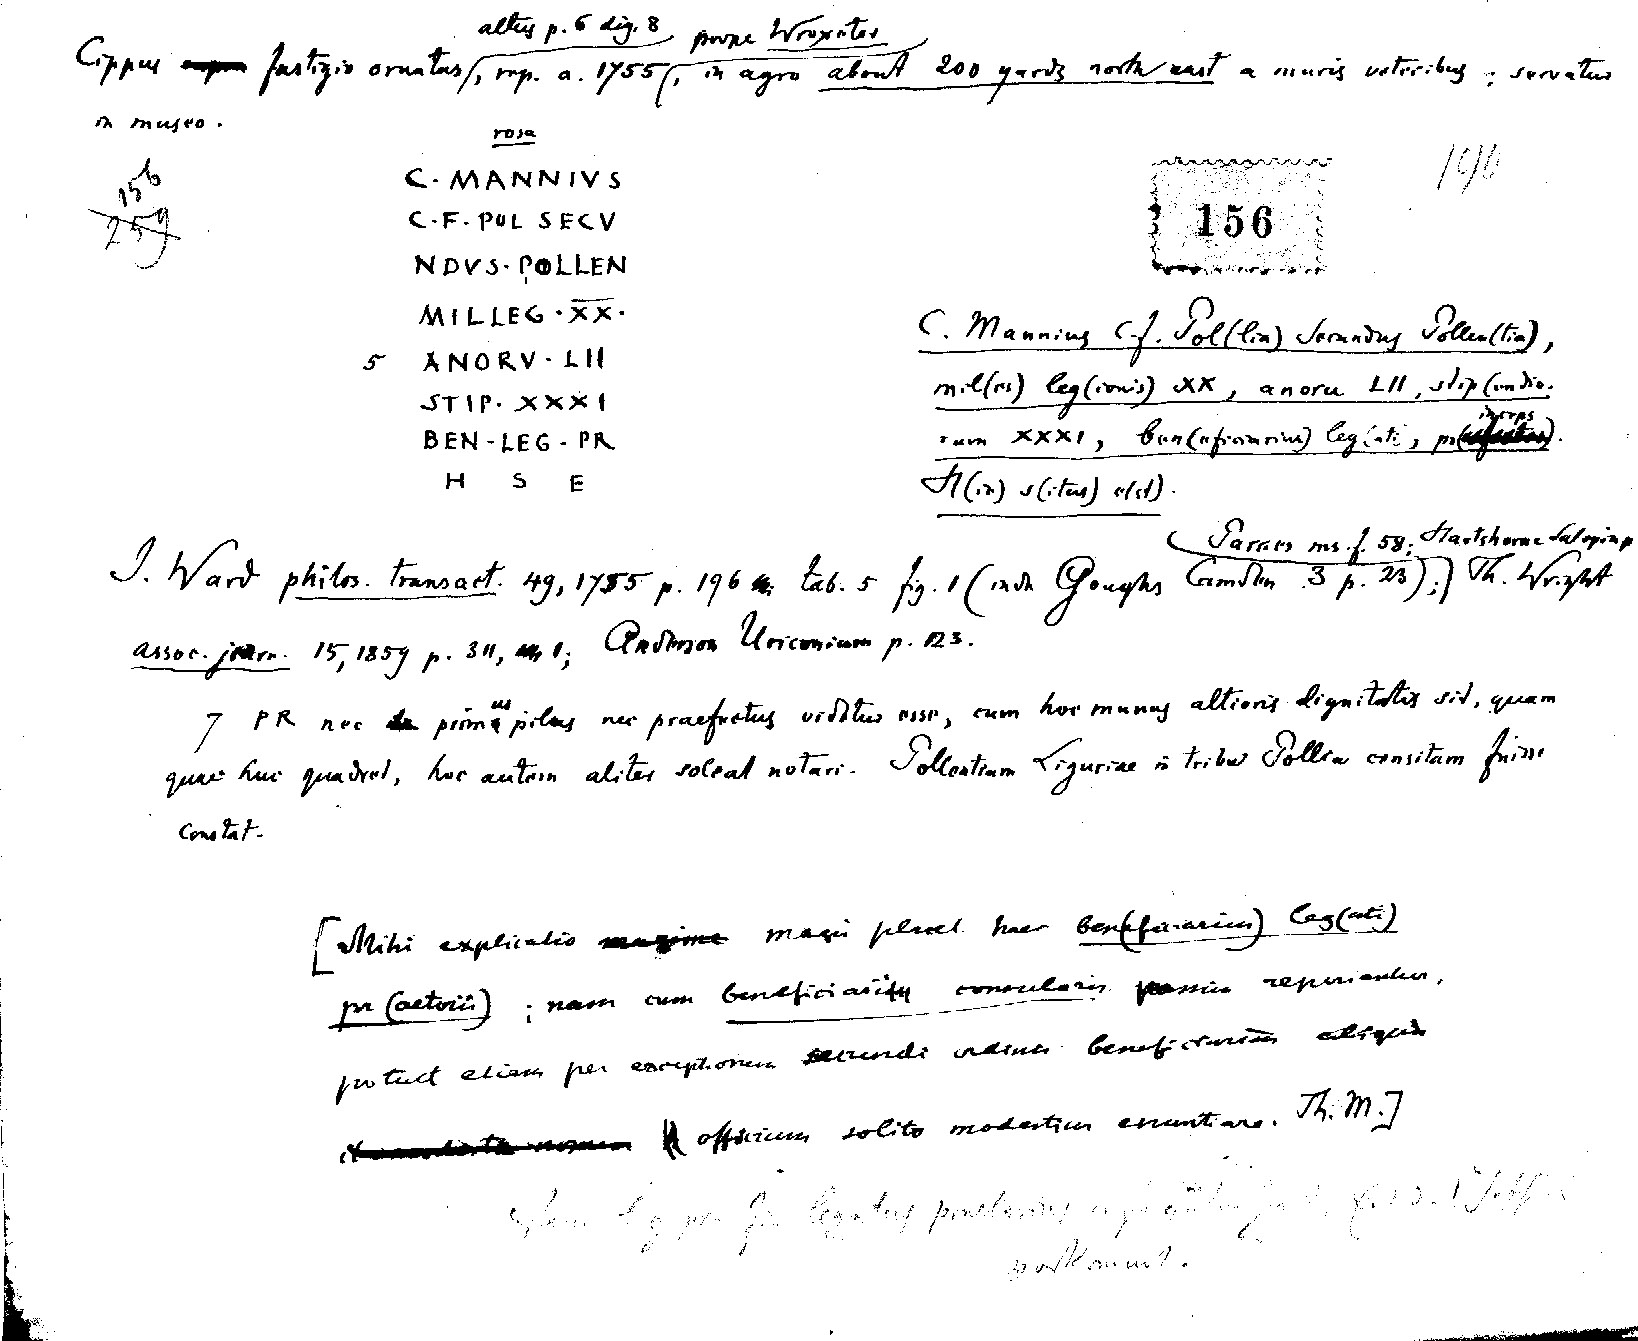 altus p. 6 dig. 8 prope Wroxeter
Cippus fastigio ornatus, rep. a. 1755, in agro about 200 yards north east a muris veteribus ; servatur
in museo.
rosa
156
259
C · MANNIVS
C · F · POL SECV
NDVS · POLLEN
MIL LEG · XX ·
5 ANORV · LII
STIP · XXXI
BEN - LEG - PR
H S E
156
C. Mannius C. f. Pol(lia) Secundus Pollen(tia),
mil(es) leg(ionis) XX, anoru LII, stip(endio-
rum XXXI, ben(eficiarius) leg(ati, pr(
H(ic) s(itus) e(st).
ms. f. 58; Hartshorne Salop
J. Ward philos. transact. 49, 1755 p. 196 tab. 5 fig. 1 (inde Goughs Camden 3 p. 23); Th. Wright
assoc. journ. 15, 1859 p. 311, 1; Anderson Uriconium p. 123.
7 PR nec primus pilus nec praefectus videtur esse, cum hoc munus altioris dignitatis sit, quam
quae huc quadret, hoc autem aliter soleat notari. Pollentiam Liguriae in tribu Pollia censitam fuisse
constat.
[Mihi explicatio magis placet haec ben(eficiarius) leg(ati)
pr(aetorii) ; nam cum beneficiarius consularis reperiantur,
potuit etiam per exceptionem secundi ordinis beneficiarius aliquis
officium solito modestius enuntiare. Th. M.]
legatus praetorius
vorkommt.